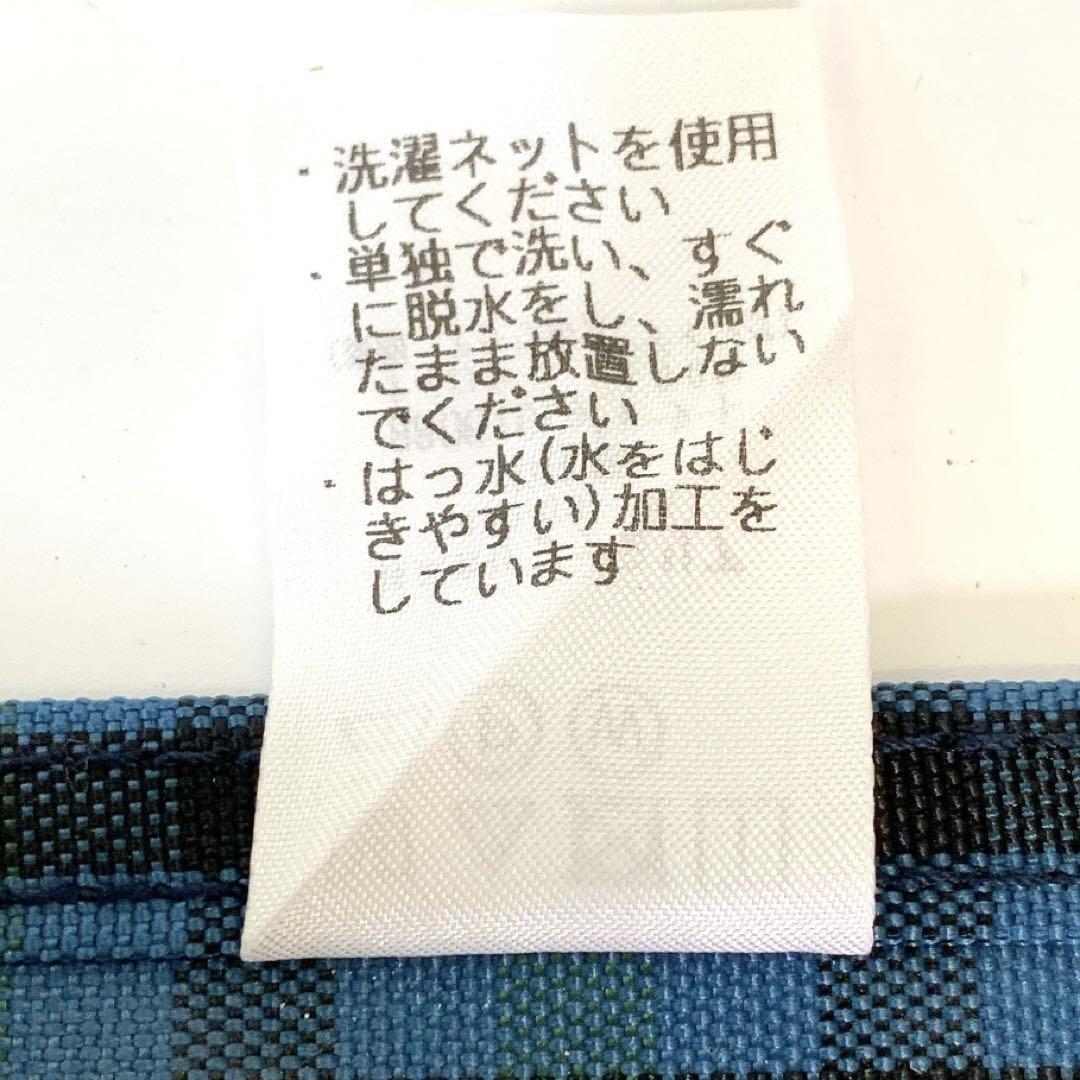 ・洗濯ネットを使用
してください
・単独で洗い、すぐ
に脱水をし、濡れ
たまま放置しない
でください
・はっ水(水をはじ
きやすい)加工を
しています